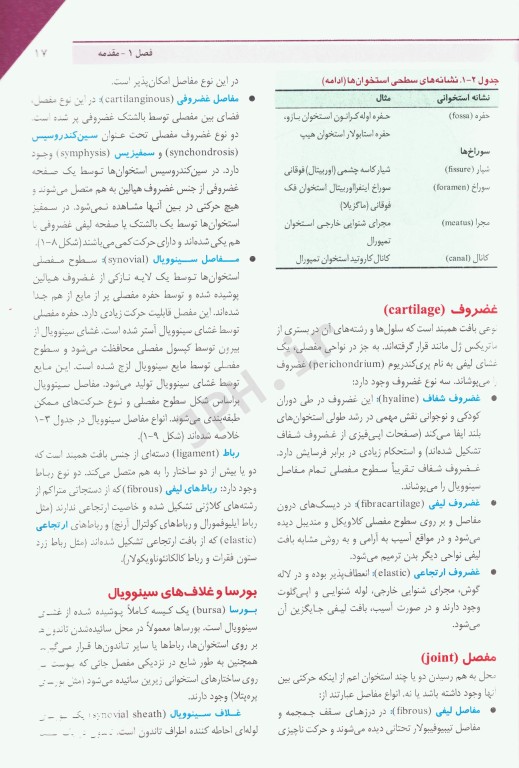 فصل ۱ - مقدمه
۱۷
جدول ۲-۱. نشانه‌های سطحی استخوان‌ها (ادامه)
نشانه استخوانی
مثال
حفره (fossa)
حفره اوله‌کرانون استخوان بازو،
حفره استابولار استخوان هیپ
سوراخ‌ها
شیار (fissure)
شیار کاسه چشمی (اوربیتال) فوقانی
سوراخ (foramen)
سوراخ اینفرااوربیتال استخوان فک
فوقانی (ماگزیلا)
مجرا (meatus)
مجرای شنوایی خارجی استخوان
تمپورال
کانال (canal)
کانال کاروتید استخوان تمپورال
غضروف (cartilage)
نوعی بافت همبند است که سلول‌ها و رشته‌های آن در بستری از
ماتریکس ژل مانند قرار گرفته‌اند. به جز در نواحی مفصلی، یک
غشای لیفی به نام پری‌کندریوم (perichondrium) غضروف
را می‌پوشاند. سه نوع غضروف وجود دارد:
• غضروف شفاف (hyaline): این غضروف در طی دوران
کودکی و نوجوانی نقش مهمی در رشد طولی استخوان‌های
بلند ایفا می‌کند (صفحات اپی‌فیزی از غضروف شفاف
تشکیل شده‌اند) و استحکام زیادی در برابر فرسایش دارد.
غضروف شفاف تقریباً سطوح مفصلی تمام مفاصل
سینوویال را می‌پوشاند.
• غضروف لیفی (fibracartilage): در دیسک‌های درون
مفاصل و بر روی سطوح مفصلی کلاویکل و مندیبل دیده
می‌شود و در مواقع آسیب به آرامی و به روش مشابه بافت
لیفی نواحی دیگر بدن ترمیم می‌شود.
• غضروف ارتجاعی (elastic): انعطاف‌پذیر بوده و در لاله
گوش، مجرای شنوایی خارجی، لوله شنوایی و اپی‌گلوت
وجود دارند و در صورت آسیب، بافت لیفی جایگزین آن
می‌شود.
مفصل (joint)
محل به هم رسیدن دو یا چند استخوان اعم از اینکه حرکتی بین
آنها وجود داشته باشد یا نه. انواع مفاصل عبارتند از:
• مفاصل لیفی (fibrous): در درزهای سقف جمجمه و
مفاصل تیبیوفیبولار تحتانی دیده می‌شوند و حرکت ناچیزی
در این نوع مفاصل امکان‌پذیر است.
• مفاصل غضروفی (cartilanginous): در این نوع مفصل،
فضای بین مفصلی توسط بالشتک غضروفی پر شده است.
دو نوع غضروف مفصلی تحت عنوان سین‌کندروسیس
(synchondrosis) و سمفیزیس (symphysis) وجود
دارد. در سین‌کندروسیس استخوان‌ها توسط یک صفحه
غضروفی از جنس غضروف هیالین به هم متصل می‌شوند و
هیچ حرکتی در بین آنها مشاهده نمی‌شود. در سمفیز
استخوان‌ها توسط یک بالشتک یا صفحه لیفی غضروفی با
هم یکی شده‌اند و دارای حرکت کمی می‌باشند (شکل ۸-۱).
• مفاصل سینوویال (synovial): سطوح مفصلی
استخوان‌ها توسط یک لایه نازکی از غضروف هیالین
پوشیده شده و توسط حفره مفصلی پر از مایع از هم جدا
شده‌اند. این مفصل قابلیت حرکت زیادی دارد. حفره مفصلی
توسط غشای سینوویال آستر شده است. غشای سینوویال از
بیرون توسط کپسول مفصلی محافظت می‌شود و سطوح
مفصلی توسط مایع سینوویال لزج شده است. این مایع
توسط غشای سینوویال تولید می‌شود. مفاصل سینوویال
براساس شکل سطوح مفصلی و نوع حرکت‌های ممکن
طبقه‌بندی می‌شوند. انواع مفاصل سینوویال در جدول ۳-۱
خلاصه شده‌اند (شکل ۹-۱).
رباط (ligament) دسته‌ای از جنس بافت همبند است که
دو یا بیش از دو ساختار را به هم متصل می‌کند. دو نوع رباط
وجود دارد: رباط‌های لیفی (fibrous) که از دستجاتی متراکم از
رشته‌های کلاژنی تشکیل شده و خاصیت ارتجاعی ندارند (مثل
رباط ایلیوفمورال و رباط‌های کولترال آرنج) و رباط‌های ارتجاعی
(elastic) که از بافت ارتجاعی تشکیل شده‌اند (مثل رباط زرد
ستون فقرات و رباط کالکانئوناویکولار).
بورسا و غلاف‌های سینوویال
بورسا (bursa) یک کیسه کاملاً پوشیده شده از غشای
سینوویال است. بورساها معمولاً در محل سائیده‌شدن تاندون‌ها
بر روی استخوان‌ها، رباط‌ها یا سایر تاندون‌ها قرار
همچنین به طور شایع در نزدیکی مفصل جائی که پوست
روی ساختارهای استخوانی زیرین سائیده می‌شود (مثل بورس
پره‌پتلا) وجود دارند.
غلاف سینوویال (synovial sheath) یک
لوله‌ای احاطه کننده اطراف تاندون است.